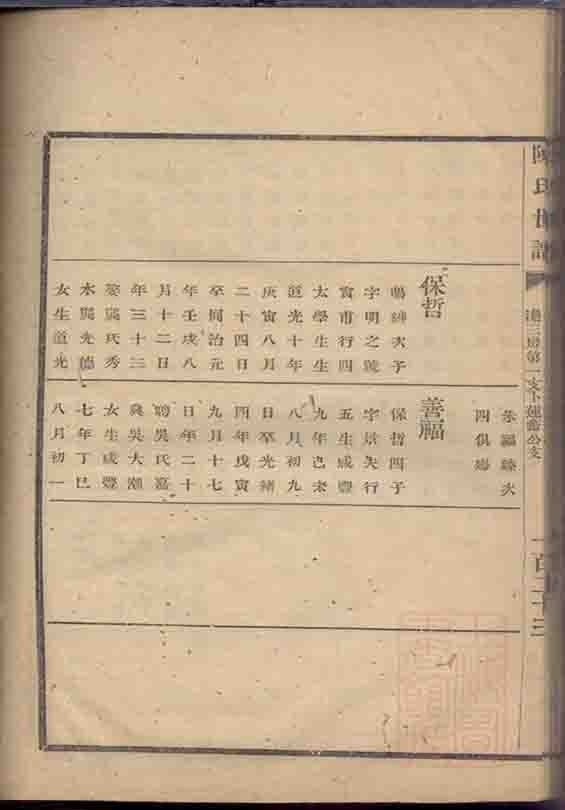 陳氏世譜
一百二十三
保哲
次子
字明之號
寅甫行四
太學生生
道光十年
庚寅八月
二十四日
卒同治元
年壬戌八
月十二日
年三十三
娶龔氏秀
水龔光德
女生道光
四俱殤
善福
保哲四子
行
五生咸豐
九年己未
八月初九
日卒光緒
四年戊寅
九月十七
日年二十
聘吳氏嘉
興吳大潮
女生咸豐
七年丁巳
八月初一